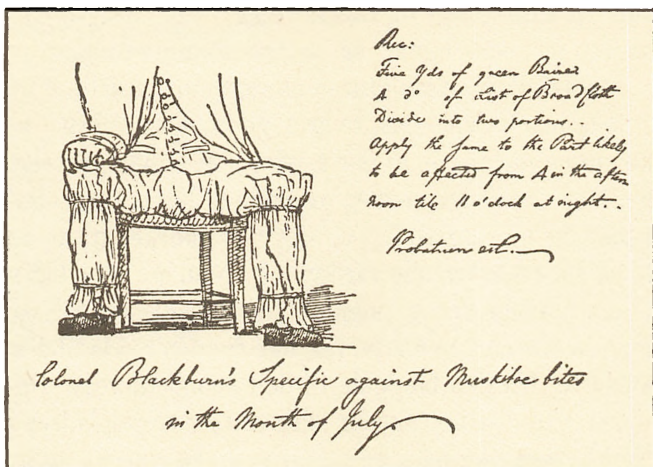 Rec:
Five Yds of green Baize
4 do of List of Broad Cloth
Divide into two portions..
Apply the same to the Part likely
to be affected from 4 in the after
noon till 11 o'clock at night.
Probatum est.
Colonel Blackburn's Specific against Muskitoe bites
in the Month of July.